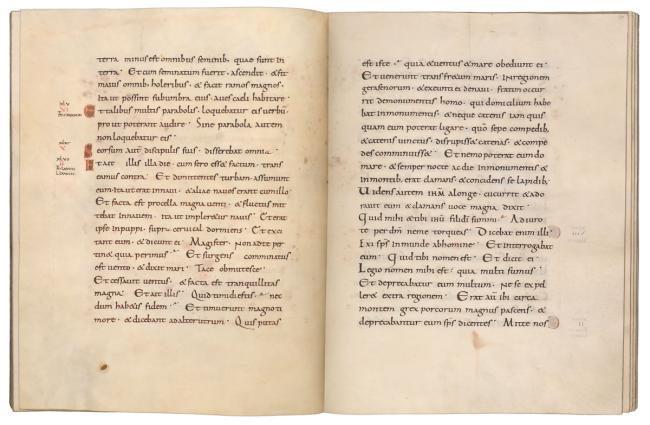 terra minus est omnibus seminib; quae sunt in
terra · Et cum seminatum fuerit · ascendit · & fit
maius omnib; holeribus · & facit ramos magnos ·
Ita ut possint sub umbra eius aves caeli habitare
Et talibus multis parabolis · loquebatur eis verbum
prout poterant audire · Sine parabola autem
non loquebatur eis
Seorsum aut discipulis suis · disserebat omnia
Et ait illis illa die · cum sero esset factum · trans
eamus contra · Et dimittentes turbam · assumunt
eum · Ita ut erat in navi · & aliae naves erant cum illo
Et facta est procella magna venti · & fluctus mit
tebat in navem · Ita ut impleretur navis · Et erat
ipse in puppi · supra cervical dormiens · Et exci
tant eum · & dicunt ei · Magister · Non ad te per
tin& quia perimus · Et surgens comminatus
est vento · & dixit mari · Tace obmutesce
Et cessavit ventus · & facta est tranquillitas
magna · Et ait illis · Quid timidi estis · nec
dum hab&is fidem · Et timuerunt magno ti
more · & dicebant ad alterutrum · Quis putas
est iste · quia & ventus & mare obediunt ei ·
Et venerunt trans fr&um maris · In regionem
gerasenorum · & exeunti ei de navi · statim occur
rit de monumentis homo · qui domicilium habe
bat in monumentis · & neque catenis iam quis
quam eum poterat ligare · quo sepe compedib;
& catenis vinctus · disrupiss& catenas · & compe
des comminuiss& · Et nemo poterat eum do
mare · & semper nocte ac die in monumentis &
in montib; erat clamans · & concidens se lapidib;
Videns autem ihm a longe · cucurrit & ado
ravit eum & clamans voce magna dixit ·
Quid mihi & tibi ihu fili di summi · Adiuro
te per dm ne me torqueas · Dicebat enim illi
Exi sps inmunde ab homine · Et interrogabat
eum · Quid tibi nomen est · Et dicit ei
Legio nomen mihi est · quia multi sumus
Et deprecabatur eum multum · Ne se expel
ler& extra regionem · Erat aut ibi circa
montem grex porcorum magnus pascens · &
deprecabantur eum sps dicentes · Mitte nos